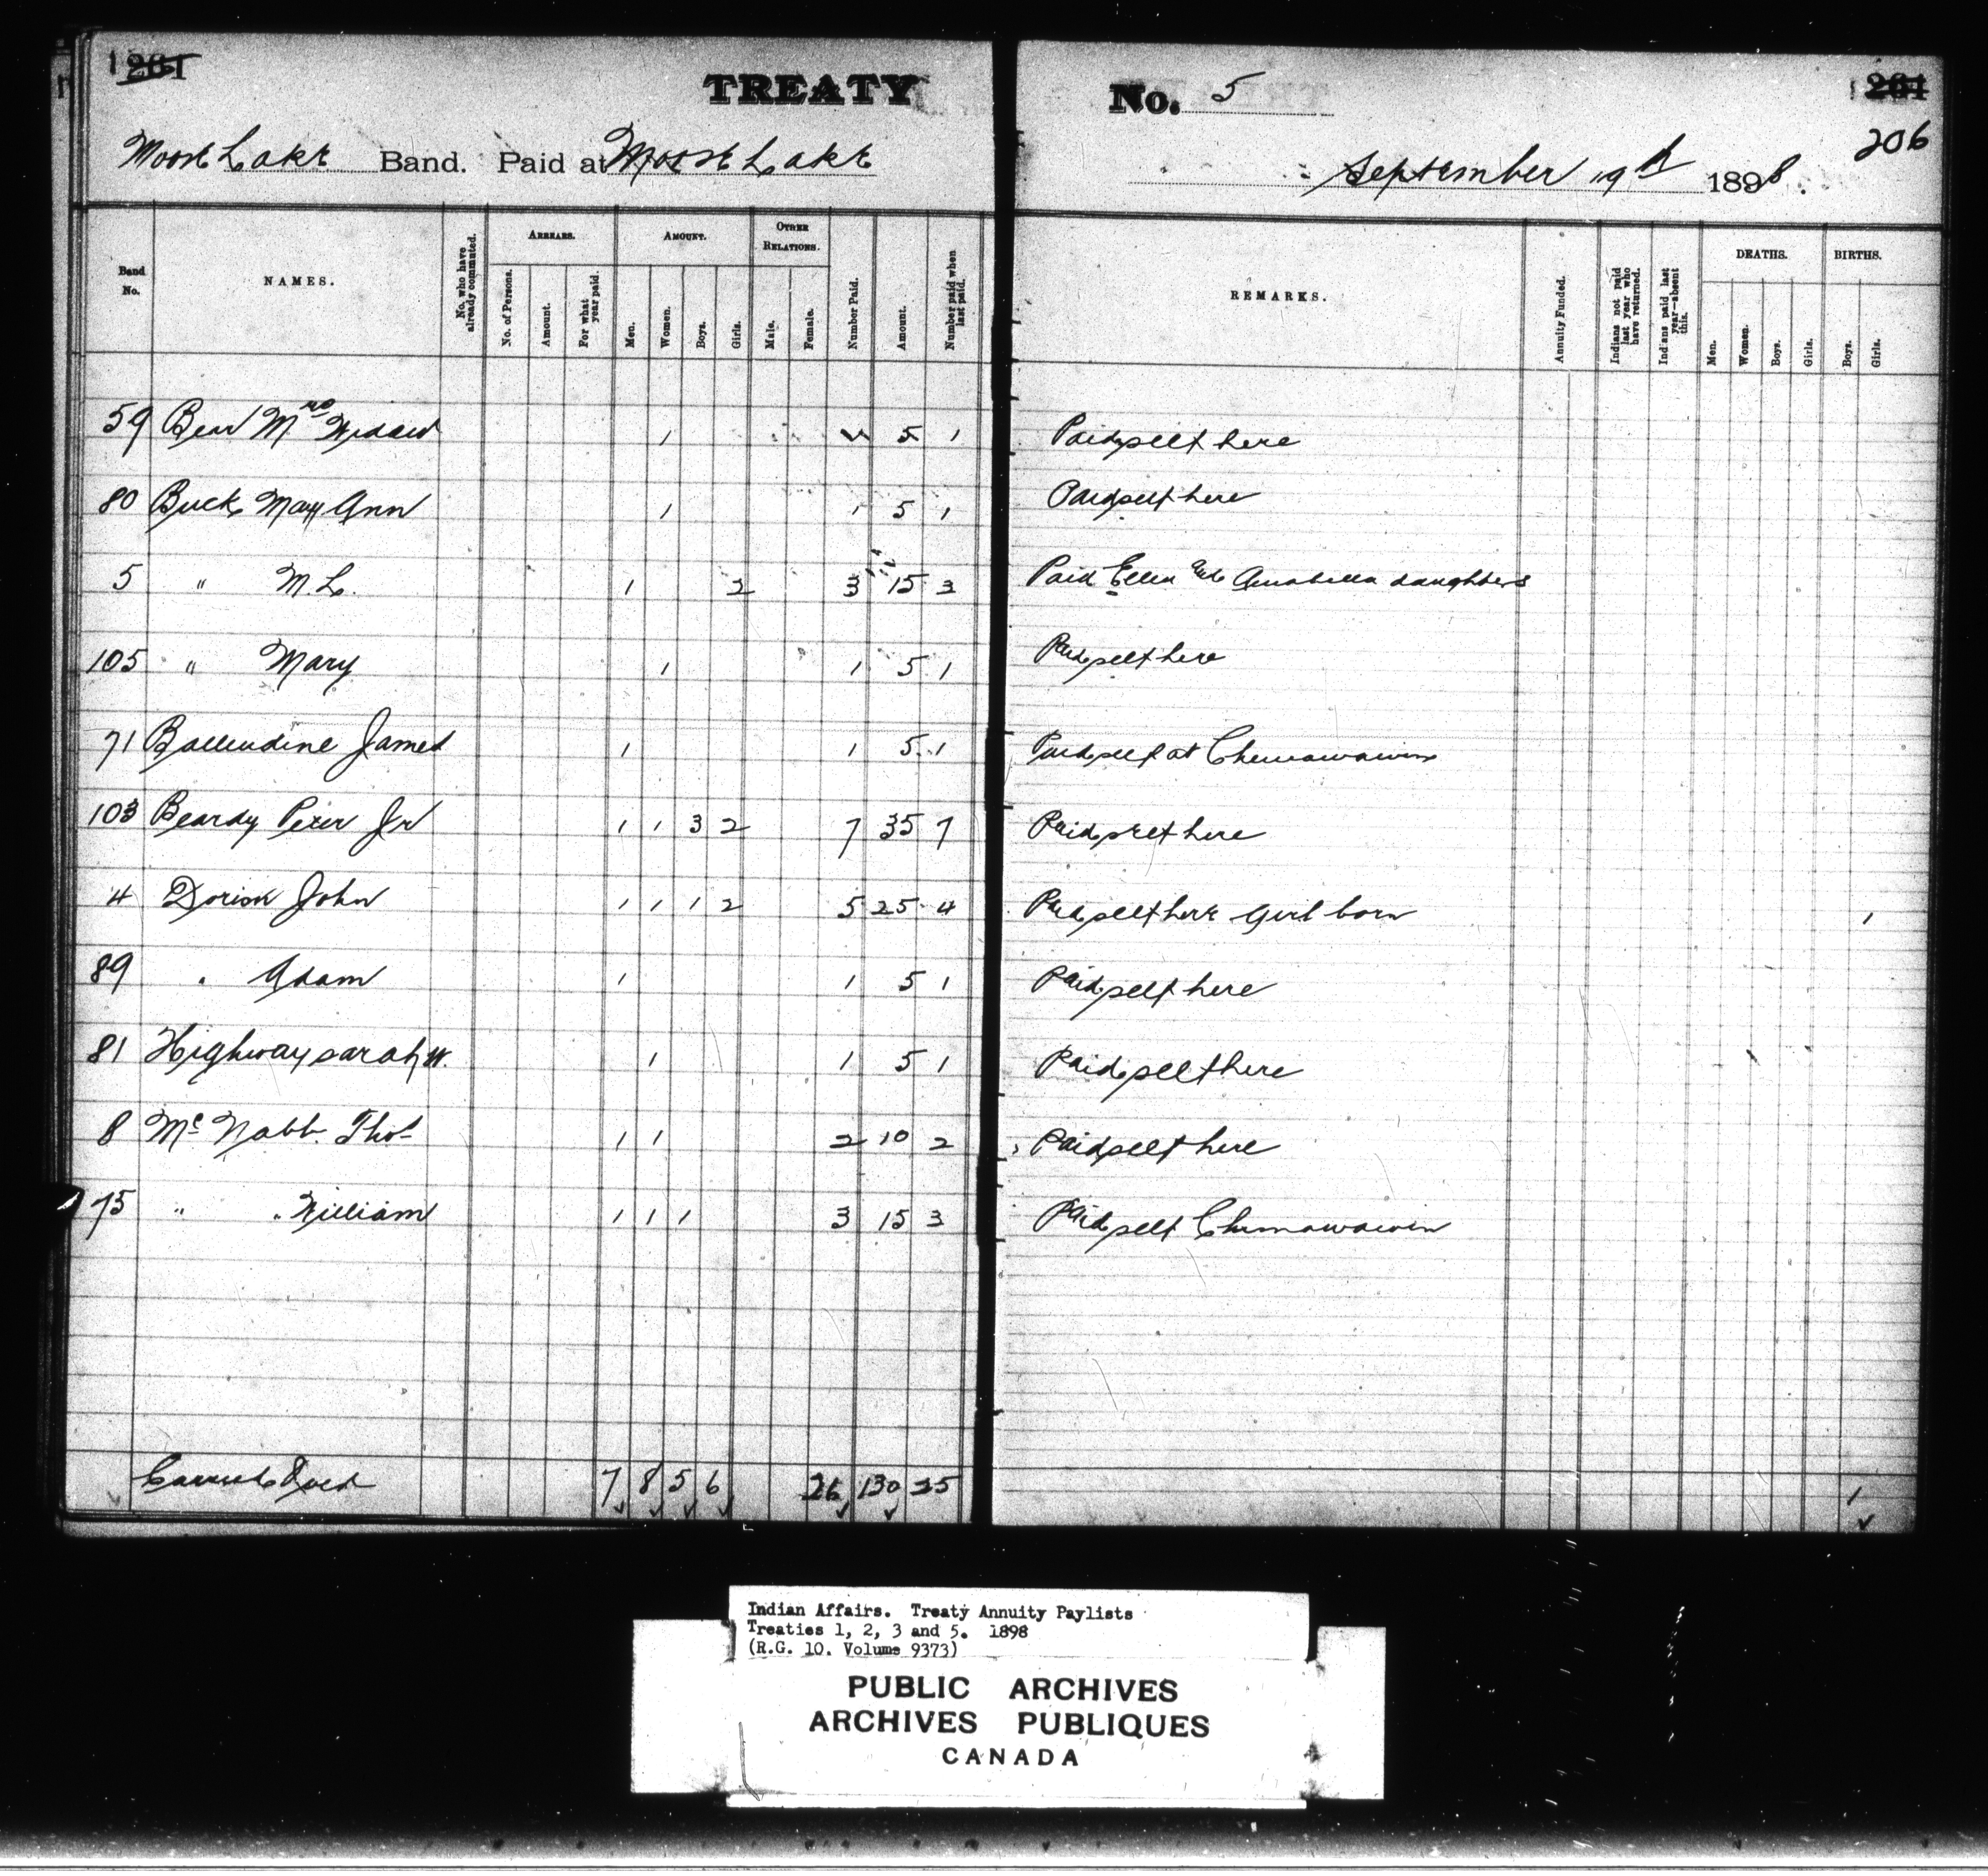 1 261
TREATY No. 5 261
206
Moose Lake Band. Paid at Moose Lake September 19th 1898.
Band No. NAMES. No. who have already commuted. ARREARS. No. of Persons. Amount. For what year paid. AMOUNT. Men. Women. Boys. Girls. OTHER RELATIONS. Male. Female. Number Paid. Amount. Number paid when last paid. REMARKS. Annuity Funded. Indians not paid last year who have returned. Indians paid last year—absent this. DEATHS. Men. Women. Boys. Girls. BIRTHS. Boys. Girls.
59 Bear Mrs Widow 1 5 1 Paid self here
80 Buck Mary Ann 1 1 5 1 Paid self here
5 " M.L. 1 2 3 15 3 Paid Ellen and Anabella daughters
105 " Mary 1 1 5 1 Paid self here
71 Ballendine James 1 1 5 1 Paid self at Chemawawin
103 Beardy Peter Jr 1 1 3 2 7 35 7 Paid self here
4 Dorion John 1 1 1 2 5 25 4 Paid self here Girl born 1
89 " Adam 1 1 5 1 Paid self here
81 Highway Sarah W. 1 1 5 1 Paid self here
8 Mc Nabb Thos 1 1 2 10 2 Paid self here
75 " William 1 1 1 3 15 3 Paid self Chemawawin
Carried Ford 7 8 5 6 26 130 25 1
Indian Affairs. Treaty Annuity Paylists
Treaties 1, 2, 3 and 5. 1898
(R.G. 10. Volume 9373)
PUBLIC ARCHIVES
ARCHIVES PUBLIQUES
CANADA